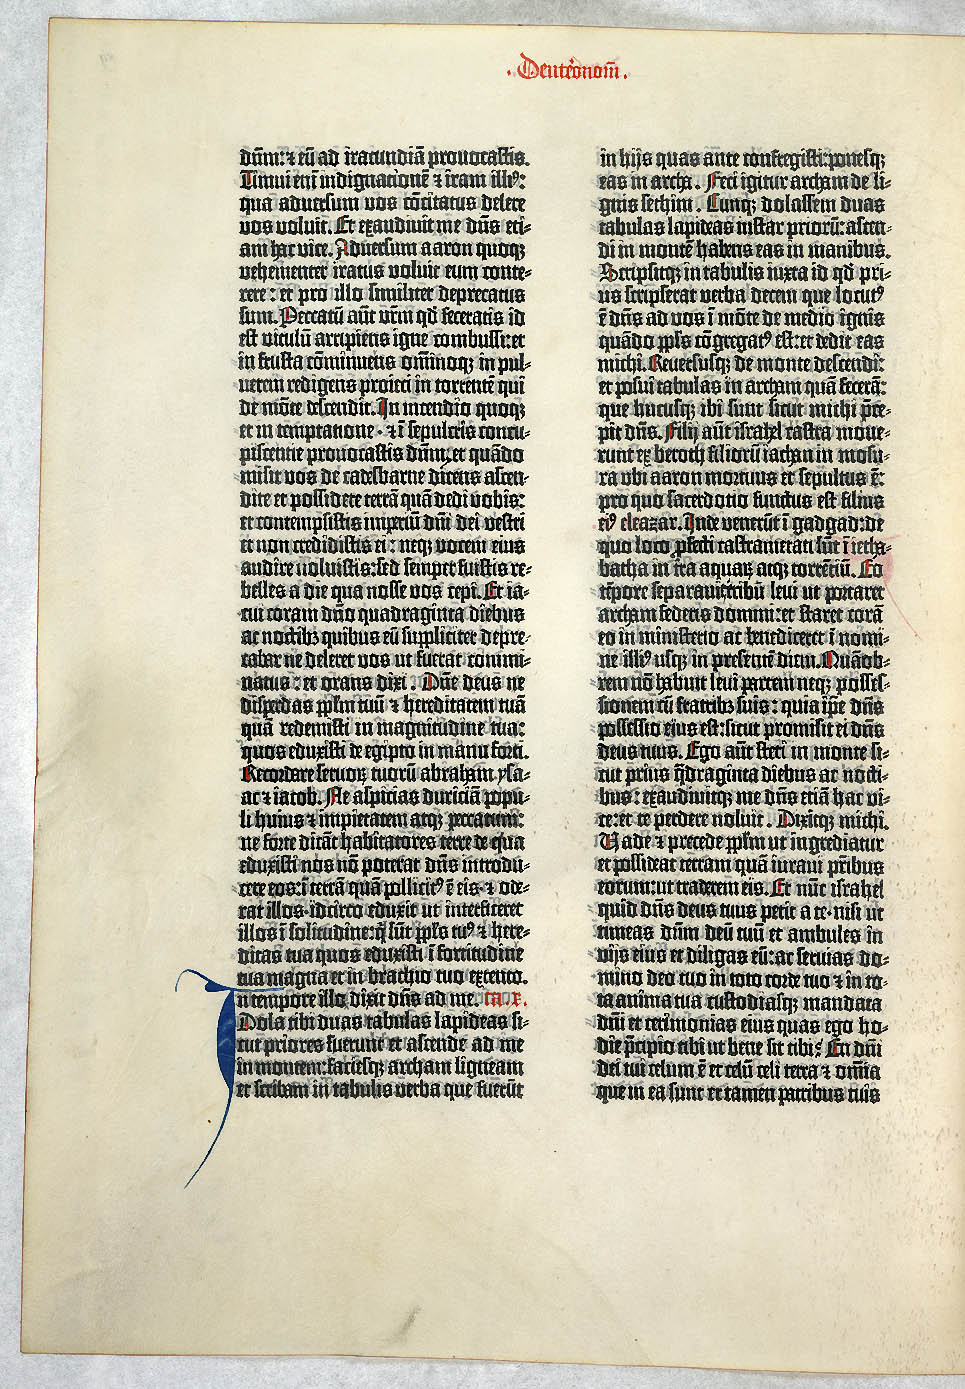 ·Deuteronom̄.
dūm: ⁊ eū ad iracundiā provocastis.
Timui eni indignationē ⁊ iram illi⁹:
qua adversum vos cōcitatus delere
vos voluit. Et exaudivit me dn̄s eti-
am hac vice. Adversum aaron quoq;
vehementer iratus voluit eum conte-
rere: et pro illo similiter deprecatus
sum. Peccatū aūt vr̄m qd̄ feceratis id
est vitulū arripiens igne combussi: et
in frusta cōminuens omninoq; in pul-
verem redigens proieci in torrentē qui
de mōte descendit. In incendio quoq;
et in temptatione · ⁊ ī sepulcris concu-
piscentie provocastis dūm: et quādo
misit vos de cadesbarne dicens ascen-
dite et possidete terrā quā dedi vobis:
et contempsistis imperiū dn̄i dei vestri
et non credidistis ei: neq; vocem eius
audire voluistis: sed semper fuistis re-
belles a die qua nosse vos cepi. Et ia-
cui coram dn̄o quadraginta diebus
ac noctib; quibus eū suppliciter depre-
cabar ne deleret vos ut fuerat commi-
natus: et orans dixi. Dn̄e deus ne
disperdas ppl̄m tuū ⁊ hereditatem tuā
quā redemisti in magnitudine tua:
quos eduxisti de egipto in manu forti.
Recordare servor; tuorū abraham ysa-
ac ⁊ iacob. Ne aspicias duriciā popu-
li huius ⁊ impietatem atq; peccatum:
ne forte dicāt habitatores terre de qua
eduxisti nos nō poterat dn̄s introdu-
cere eos: ī terrā quā pollicit⁹ ē eis · ⁊ ode-
rat illos · idcirco eduxit ut interficeret
illos ī solitudine: q̄ sūt ppl̄s tu⁹ ⁊ here-
ditas tua quos eduxisti ī fortitudine
tua magna et in brachio tuo extento.
In tempore illo dixit dn̄s ad me. ca. x.
Dola tibi duas tabulas lapideas si-
cut priores fuerunt et ascende ad me
in montem: faciesq; archam ligneam
et scribam in tabulis verba que fuerūt
in hijs quas ante confregisti: ponesq;
eas in archa. Feci igitur archam de li-
gnis sethim. Cunq; dolassem duas
tabulas lapideas instar priorū: ascen-
di in montē habens eas in manibus.
Scripsitq; in tabulis iuxta id qd̄ pri-
us scripserat verba decem que locut⁹
ē dn̄s ad vos ī mōte de medio ignis
quādo ppl̄s cōgregat⁹ est: et dedit eas
michi. Reversusq; de monte descendi:
et posui tabulas in archam quā fecerā:
que hucusq; ibi sunt sicut michi p̄ce-
pit dn̄s. Filij aūt israhel castra move-
runt ex beroth filiorū iachan in mose-
ra ubi aaron mortuus et sepultus ē:
pro quo sacerdotio functus est filius
ei⁹ eleazar. Inde venerūt ī gadgad: de
quo loco p̄fecti castrametati sūt ī ietha-
batha in terra aquar; atq; torrentiū. Eo
tēpore separavit tribū levi ut portaret
archam federis domini: et staret corā
eo in ministerio ac benediceret ī nomi-
ne illi⁹ usq; in presentē diem. Quāob-
rem nō habuit levi partem neq; posses-
sionem cū fratrib; suis: quia ip̄e dn̄s
possessio eius est: sicut promisit ei dn̄s
deus tuus. Ego aūt steti in monte si-
cut prius q̄draginta diebus ac nocti-
bus: exaudivitq; me dn̄s etiā hac vi-
ce: et te perdere noluit. Dixitq; michi.
Vade ⁊ precede ppl̄m ut ingrediatur
et possideat terram quā iuravi pr̄ibus
eorum: ut traderem eis. Et nūc israhel
quid dn̄s deus tuus petit a te · nisi ut
timeas dūm deū tuū et ambules in
vijs eius et diligas eū: ac servias do-
mino deo tuo in toto corde tuo ⁊ in to-
ta anima tua: custodiasq; mandata
dn̄i et cerimonias eius quas ego ho-
die p̄cipio tibi ut bene sit tibi? En dn̄i
dei tui celum ē et celū celi terra ⁊ omnia
que in ea sunt et tamen patribus tuis